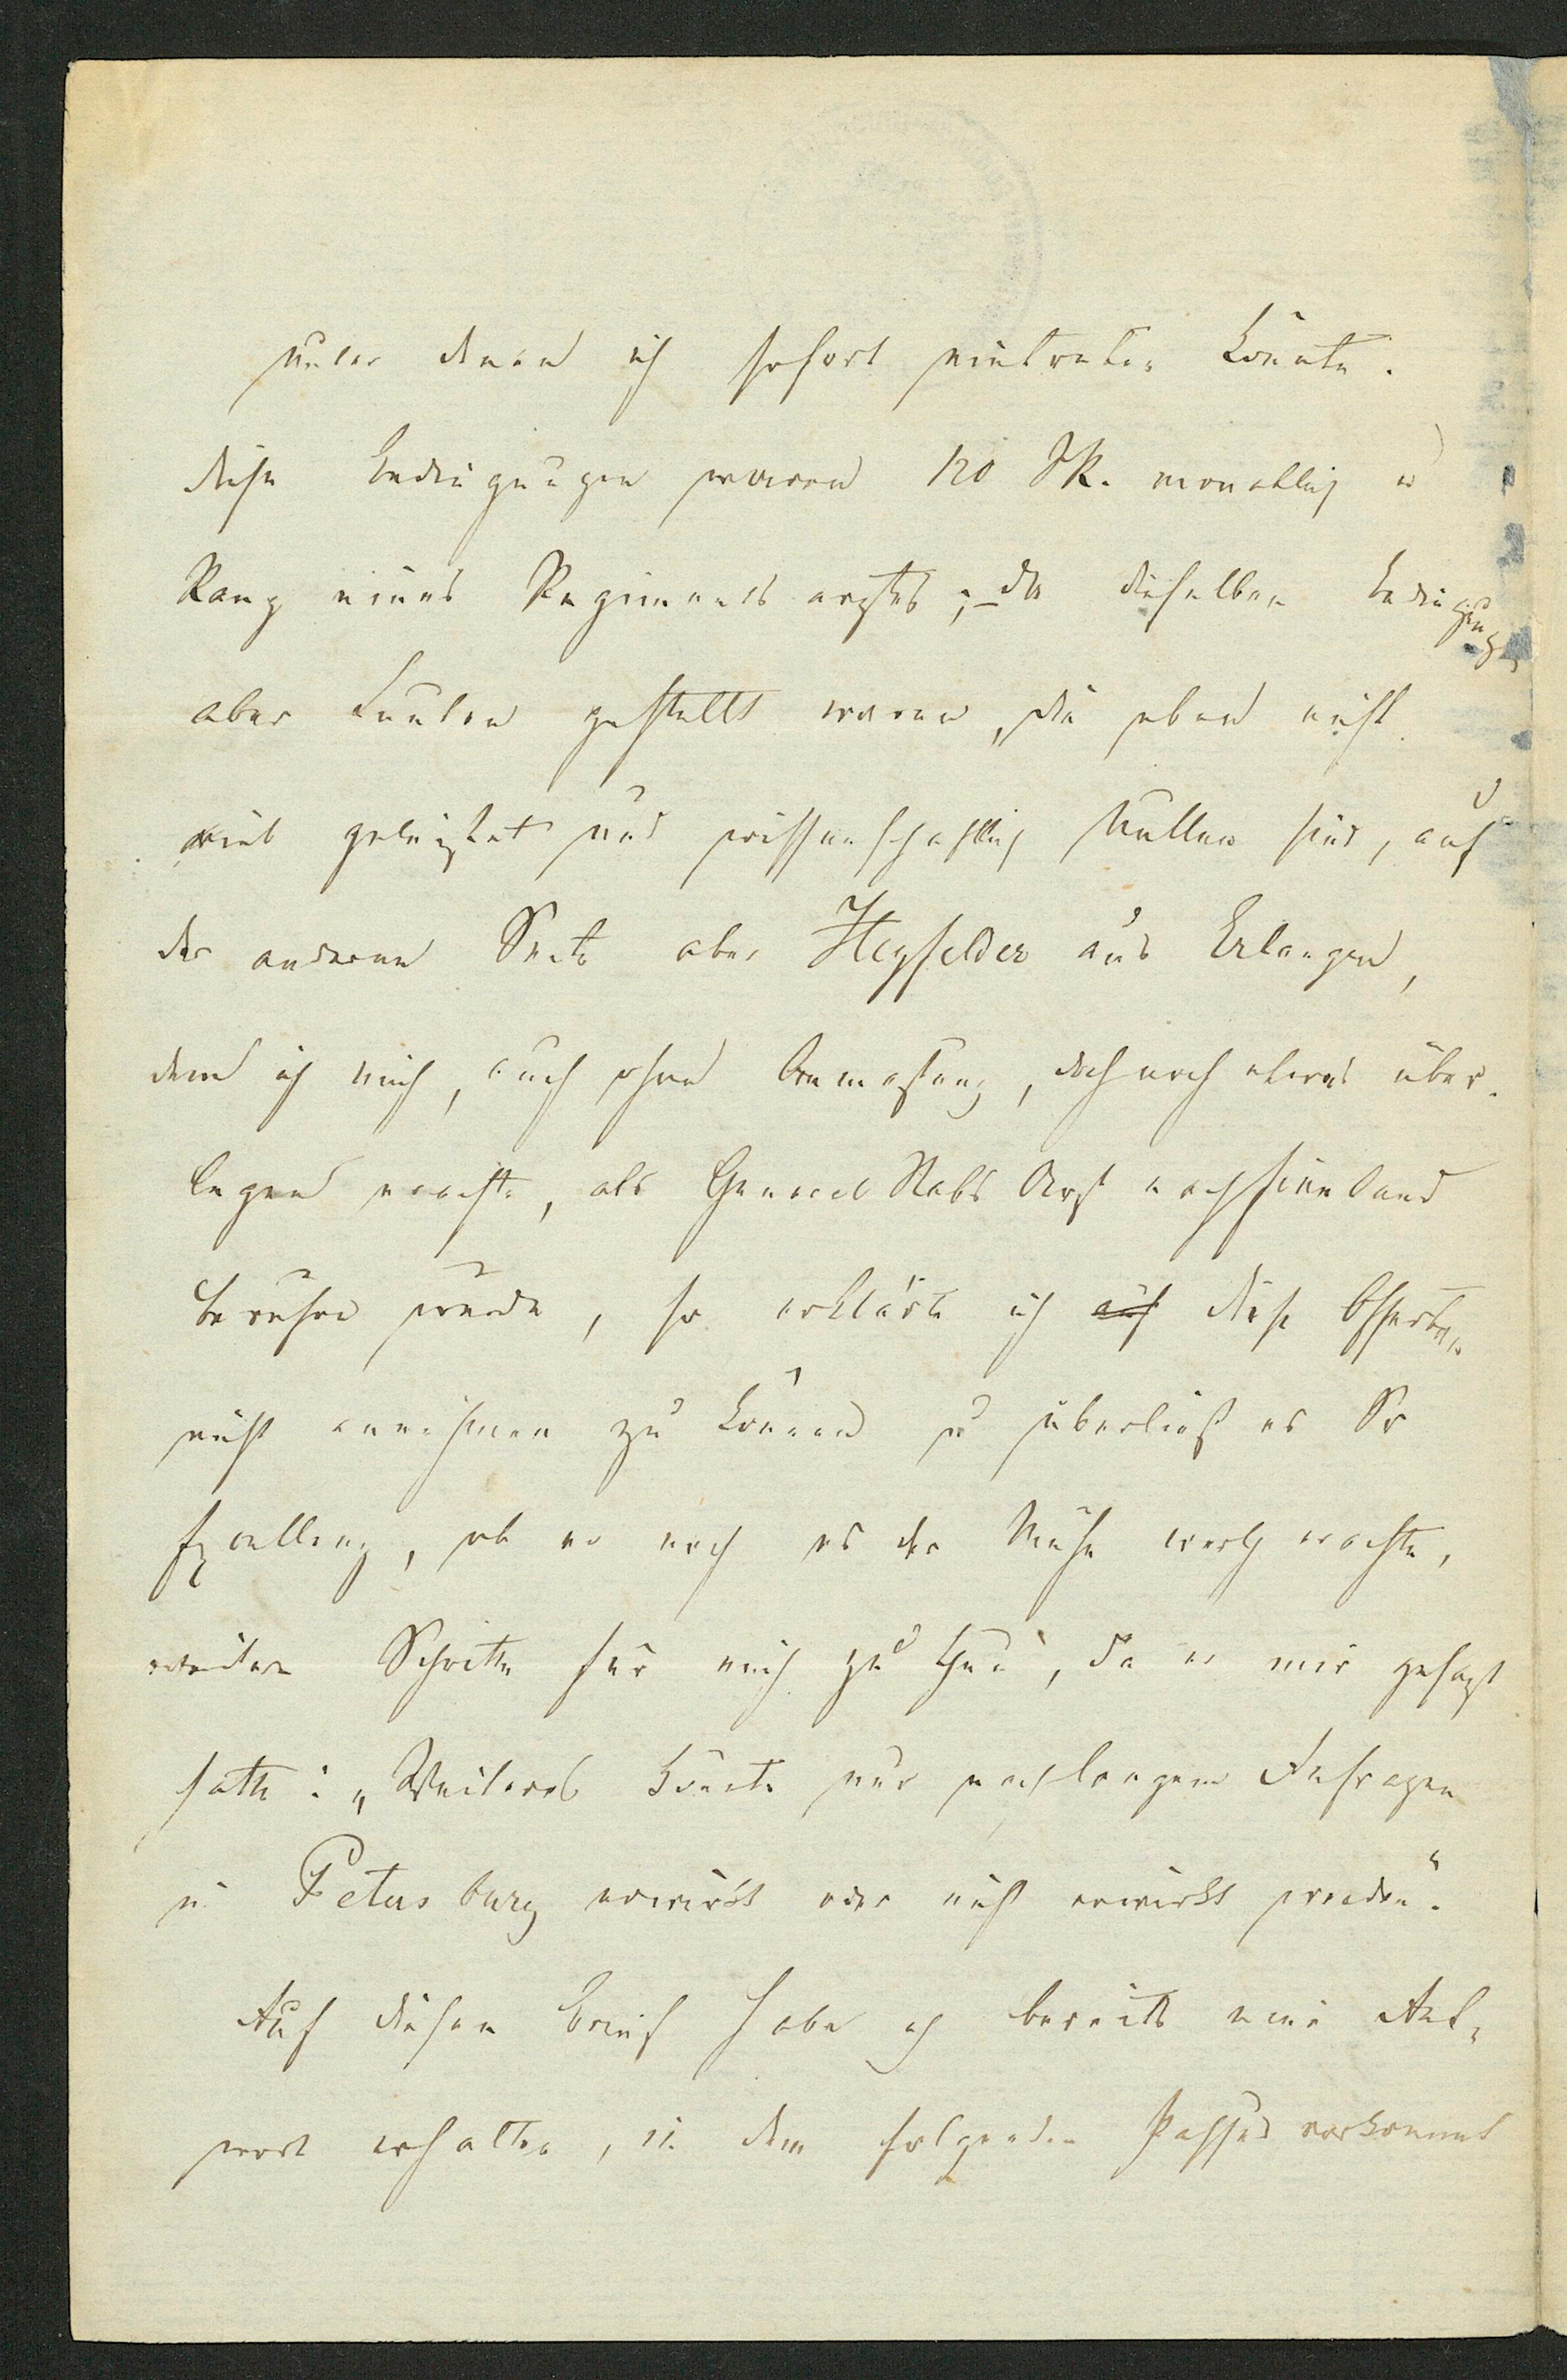 unter denen ich sofort eintreten könnte.
diese Bedingungen waren 120 SR. monatlich u
Rang eines Regimentsarztes; – da dieselben Bedingungen
aber Leuten gestellt waren, die eben nicht
viel geleistet und wissenschaftlich Nullen sind, auf
der anderen Seite aber Heyfelder aus Erlangen,
dem ich mich, auch ohne Anmaßung, doch noch etwas über-
legen erachte, als General Stabs Arzt nach Finnland
berufen wurde, so erklärte ich auf diese Offerten
nicht annehmen zu können u überließ es Sr
Excellenz, ob er noch es der Mühe werth erachte,
weitere Schritte für mich zu thun, da er mir gesagt
hatte: „Weiteres könnte nur nach langem Anfragen
in Petersburg erwirkt oder nicht erwirkt werden“.
Auf diesen Brief habe ich bereits eine Ant-
wort erhalten, in dem folgender Passus vorkommt